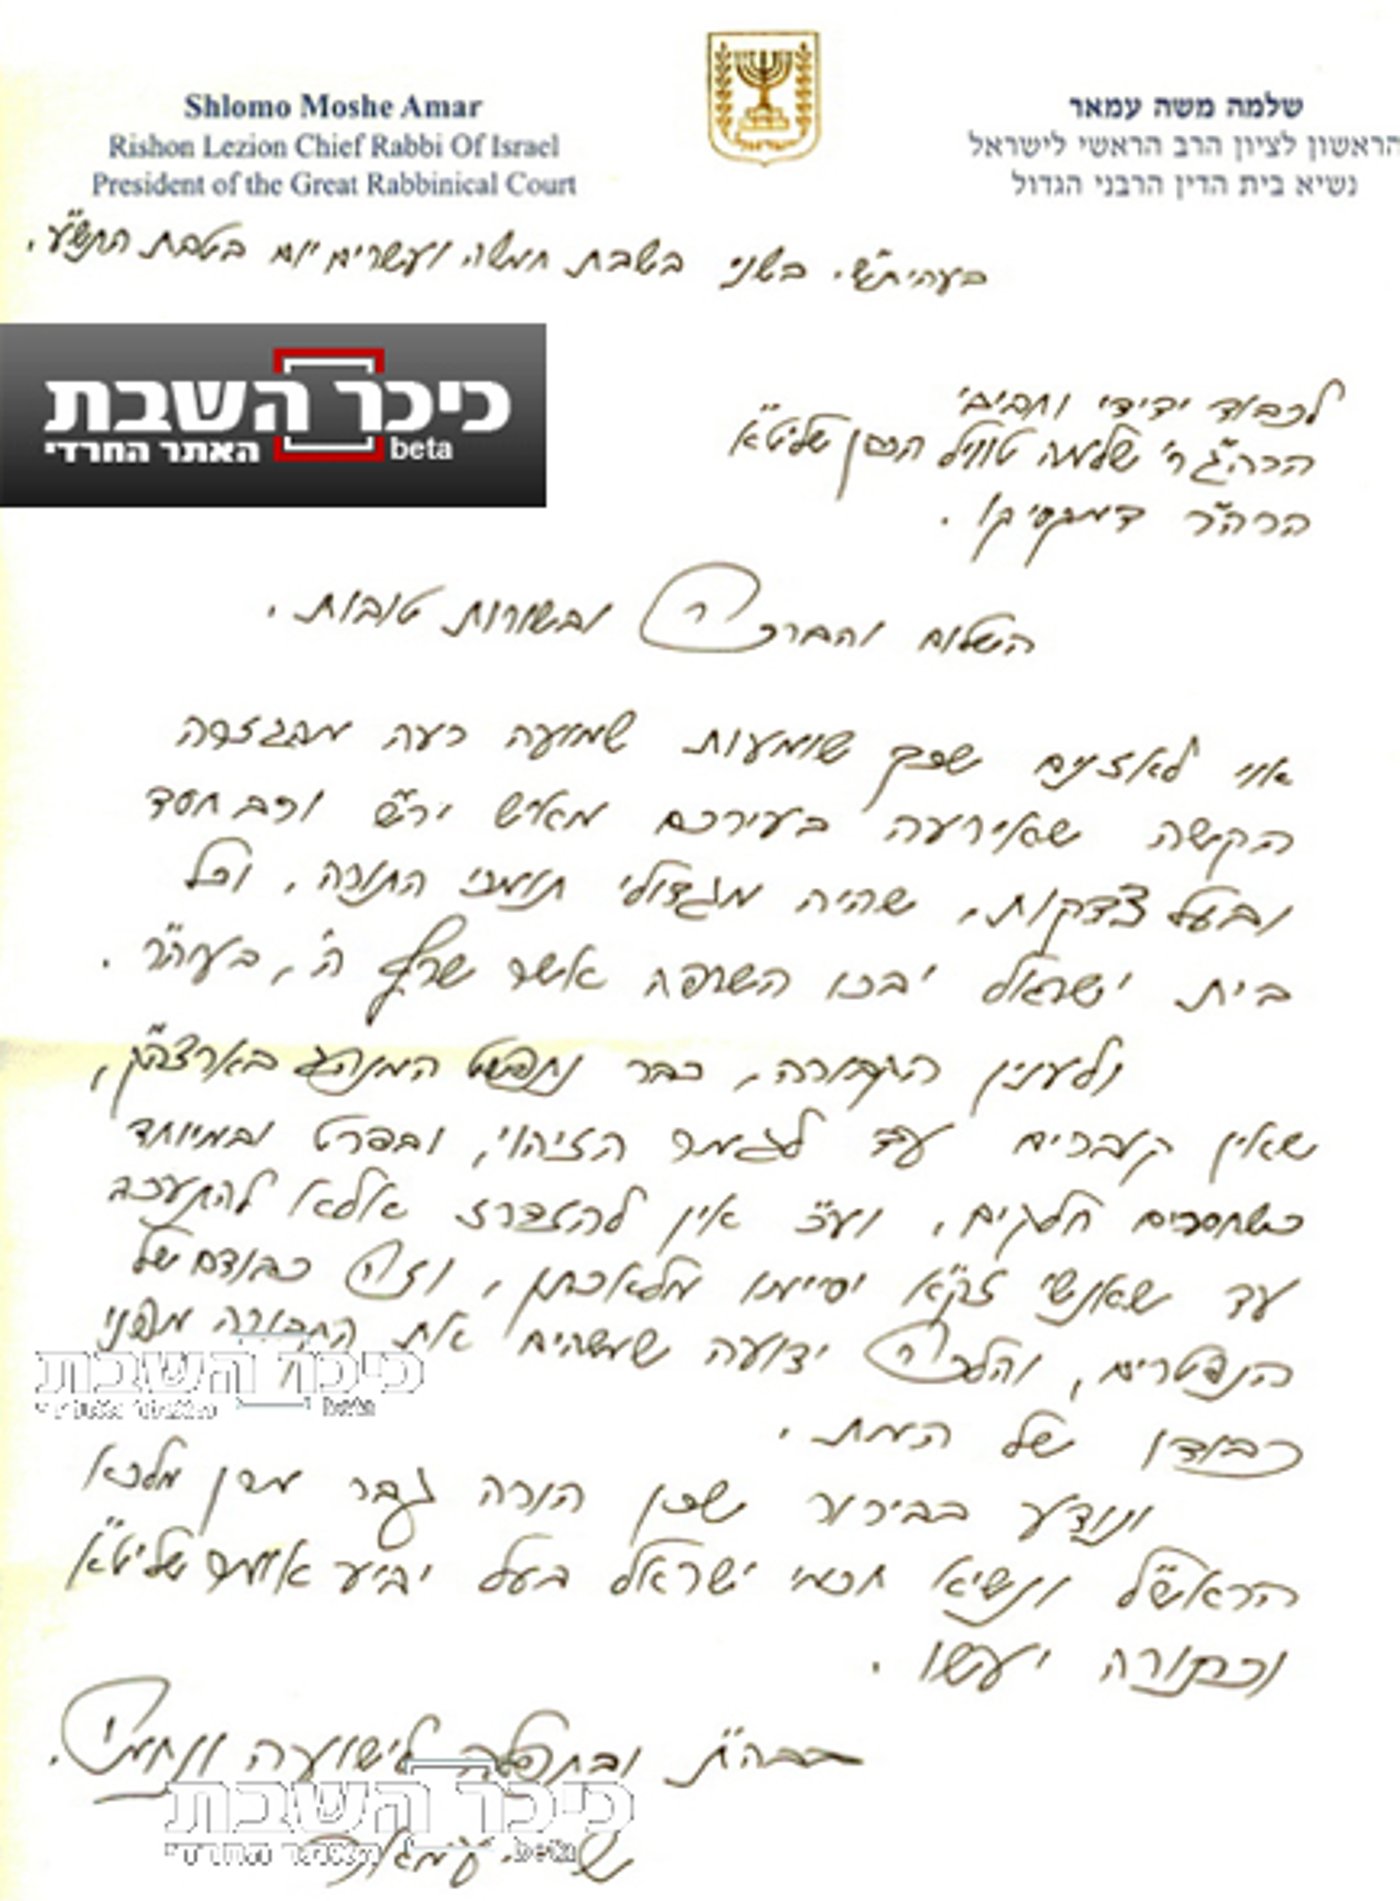 Shlomo Moshe Amar
Rishon Lezion Chief Rabbi Of Israel
President of the Great Rabbinical Court
שלמה משה עמאר
הראשון לציון הרב הראשי לישראל
נשיא בית הדין הרבני הגדול
בעהית"ש. בשני בשבת חמשה ועשרים יום בטבת התש"ע.
כיכר השבת
האתר החרדי beta
לכבוד ידידי וחביבי
הכהה"ג ר' שלמה טוויל הכהן שליט"א
הרה"ר דמקסיקו.
השלום והברכה ובשורות טובות.
אני לאזנים שכך שומעות שמועה רעה מהגזרה
הקשה שאירעה בעירכם מאיש ירש ורב חסד
ובעל צדקות, שהיה מגדולי תומכי התורה, וכל
בית ישראל יבכו השרפה אשר שרף ה', בעוה"ר.
ולענין הקבורה, כבר נתפשט המנהג בארצה"ק,
שאין קוברים עד לגמר הזיהוי, ובפרט ובמיוחד
כשחסרים חלקים, וע"כ אין להזדרז אלא להתעכב
עד שאנשי זק"א יסיימו מלאכתן, וזה כבודם של
הנפטרים, והלכה ידועה שמשהים את הקבורה מפני
כבודו של המת.
ונודע בבירור שכן הורה גבר מרן מלכא
הראש"ל ונשיא חכמי ישראל בעל יביע אומר שליט"א
וכתורה יעשו.
בבהת ובתפלה לישועה ונחמה.
כיכר השבת
beta
כיכר השבת
האתר החרדי beta